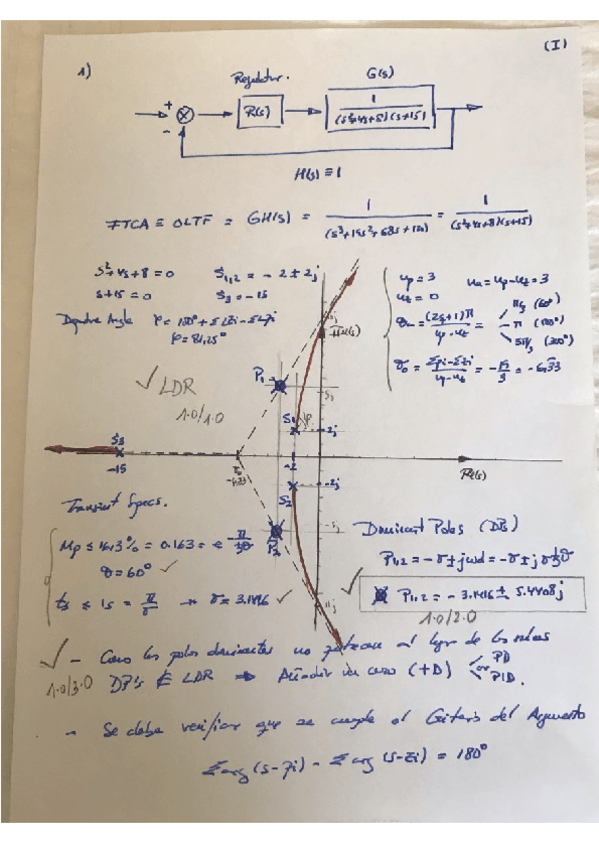 (I)
1)
Regulador.
G(s)
+
-
R(s)
1
(s²+4s+8)(s+15)
H(s) ≡ 1
FTCA ≡ OLTF = GH(s) = 1 / (s³+19s²+68s+120) = 1 / (s²+4s+8)(s+15)
s²+4s+8=0 S1,2 = -2 ± 2j
s+15=0 S3 = -15
Departure Angle φ = 180° + Σ∠zi - Σ∠pi
np = 3 na = np - nz = 3
nz = 0
θa = (2q+1)π / np - nz = π/3 (60°)
-π (180°)
5π/3 (300°)
σo = Σpi - Σzi / np - nz = -19/3 = -6.33
Im(s)
✓ LDR
1.0/1.0
P1
5j
S1
φ
2j
S3
-15
σo
-6.33
-2
-2j
Re(s)
S2
-5j
P2
Transient Specs.
Mp ≤ 16.3% = 0.163 = e
θ = 60° ✓
ts ≤ 1s = π/σ → σ = 3.1416 ✓
Dominant Poles (DP)
P1,2 = -σ ± jωd = -σ ± jσ tg θ
✓
P1,2 = -3.1416 ± 5.4408j
1.0/2.0
✓ - Como los polos dominantes no pertenecen al lugar de las raíces
1.0/3.0 DP's ∉ LDR ⇒ Añadir un cero (+D) PD
or
PID.
- Se debe verificar que se cumple el Criterio del Argumento
Σarg(s-pi) - Σarg(s-zi) = 180°